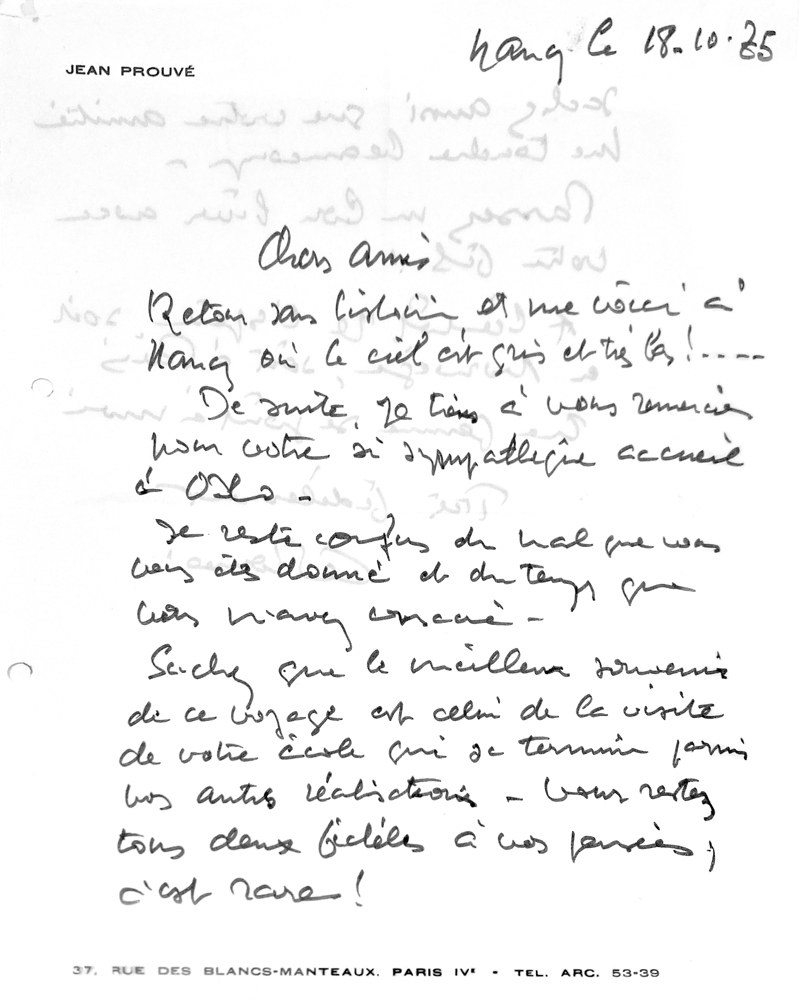 Nancy le 18.10.75
JEAN PROUVÉ
Chers amis
Retour sans histoire et me voici à
Nancy où le ciel est gris et très bas!....
De suite, je tiens à vous remercier
pour votre si sympathique accueil
à Oslo -
Je reste confus du mal que vous
vous êtes donné et du temps que
vous m'avez consacré -
Sachez que le meilleur souvenir
de ce voyage est celui de la visite
de votre école qui se termine parmi
vos autres réalisations - Vous restez
tous deux fidèles à vos pensées,
c'est rare!
37, RUE DES BLANCS-MANTEAUX. PARIS IVᵉ - TEL. ARC. 53-39